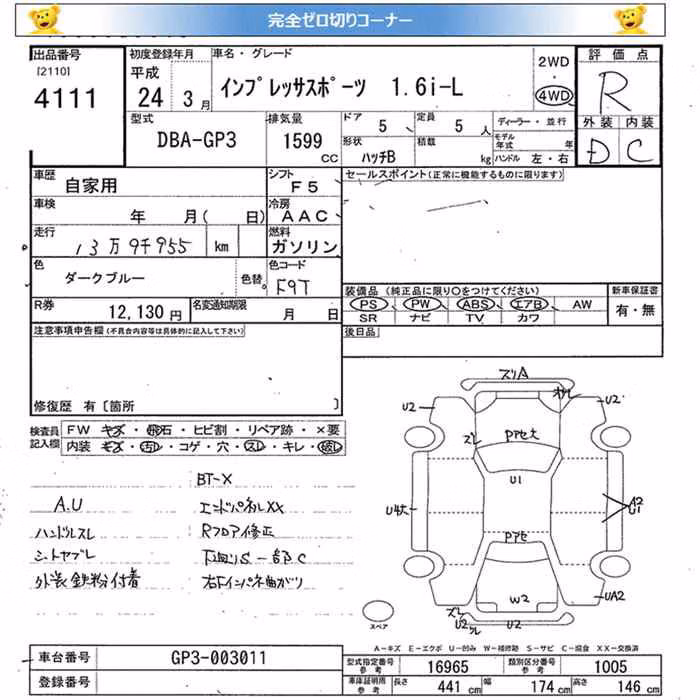 完全ゼロ切りコーナー
出品番号
[2110]
4111
初度登録年月
平成
24 3月
車名・グレード
インプレッサスポーツ 1.6i-L
2WD
・
4WD
評価点
R
型式
DBA-GP3
排気量
1599
CC
ドア
5
定員
5 人
ディーラー・並行
モデル
年式 年
形状
ハッチB
積載
kg
ハンドル 左・右
外装 内装
D C
車歴
自家用
シフト
F5
セールスポイント(正常に機能するものに限ります)
車検
年 月( 日)
冷房
AAC
走行
13万9千955 km
燃料
ガソリン
色
ダークブルー
色替
色コード
F9T
装備品(純正品に限り○をつけてください)
新車保証書
PS PW ABS エアB AW
SR ナビ TV カワ
有・無
R券
12,130円
名変通知期限
月 日
注意事項申告欄(不具合内容等は具体的に記入して下さい)
後日品
修復歴 有[箇所 ]
検査員
記入欄
FW キズ・飛石・ヒビ割・リペア跡・×要
内装 キズ・汚レ・コゲ・穴・スレ・キレ・破レ
BT-X
A.U
エンドパネルXX
ハンドルスレ
Rフロア修正
シートヤブレ
下廻りS-部C
外装鉄粉付着
右Fインパネ曲がり
ズリA
U2
U2
ズレ
PPセ大
U1
U4大
A2
U1
PPセ
W2
UA2
ズレ
U2
U2
スペア
A-キズ E-エクボ U-凹み W-補修跡 S-サビ C-腐食 XX-交換済
車台番号
GP3-003011
登録番号
型式指定番号
参考
16965
類別区分番号
参考
1005
車庫証明用
参考
長さ
441 cm
幅
174 cm
高さ
146 cm